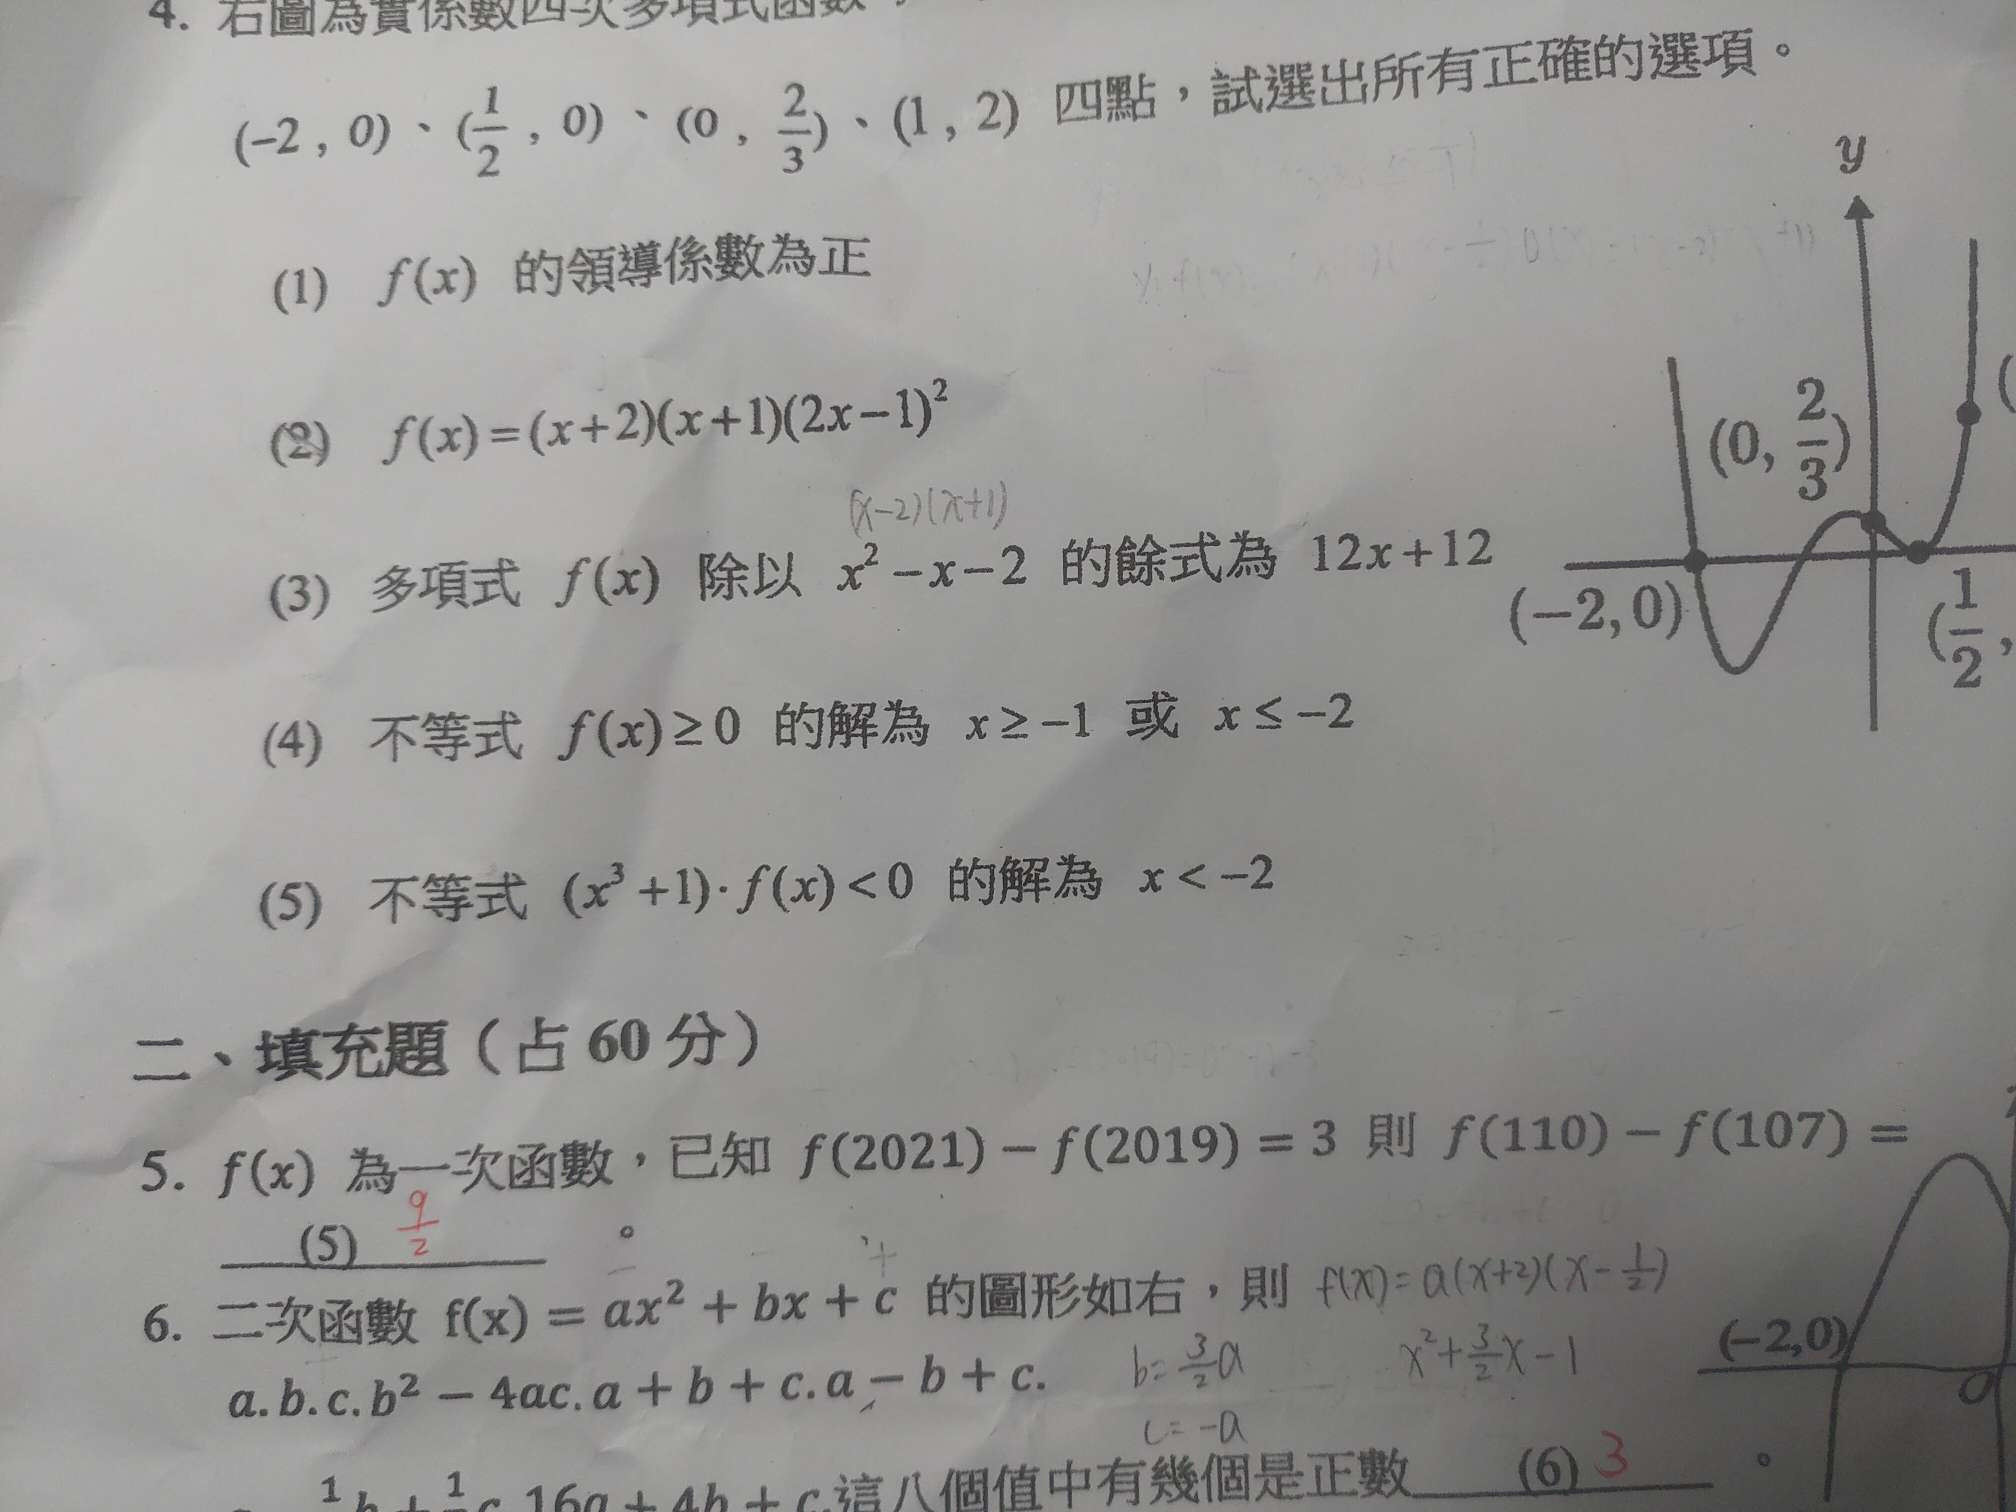 4. 右圖為實係數四次多項式函數
(-2, 0)、(1/2, 0)、(0, 2/3)、(1, 2) 四點，試選出所有正確的選項。
(1) f(x) 的領導係數為正
(2) f(x)=(x+2)(x+1)(2x-1)²
(x-2)(x+1)
(3) 多項式 f(x) 除以 x²-x-2 的餘式為 12x+12
(4) 不等式 f(x)≥0 的解為 x≥-1 或 x≤-2
(5) 不等式 (x³+1)·f(x)<0 的解為 x<-2
y
(0, 2/3)
(-2,0)
(1/2,
二、填充題（占 60 分）
5. f(x) 為一次函數，已知 f(2021) - f(2019) = 3 則 f(110) - f(107) =
(5) 9/2 。
6. 二次函數 f(x) = ax² + bx + c 的圖形如右，則 f(x)=a(x+2)(x-1/2)
a. b. c. b² - 4ac. a + b + c. a - b + c. b=3/2a x²+3/2x-1
c=-a
16a + 4b + c.這八個值中有幾個是正數 (6) 3 。
(-2,0)
O